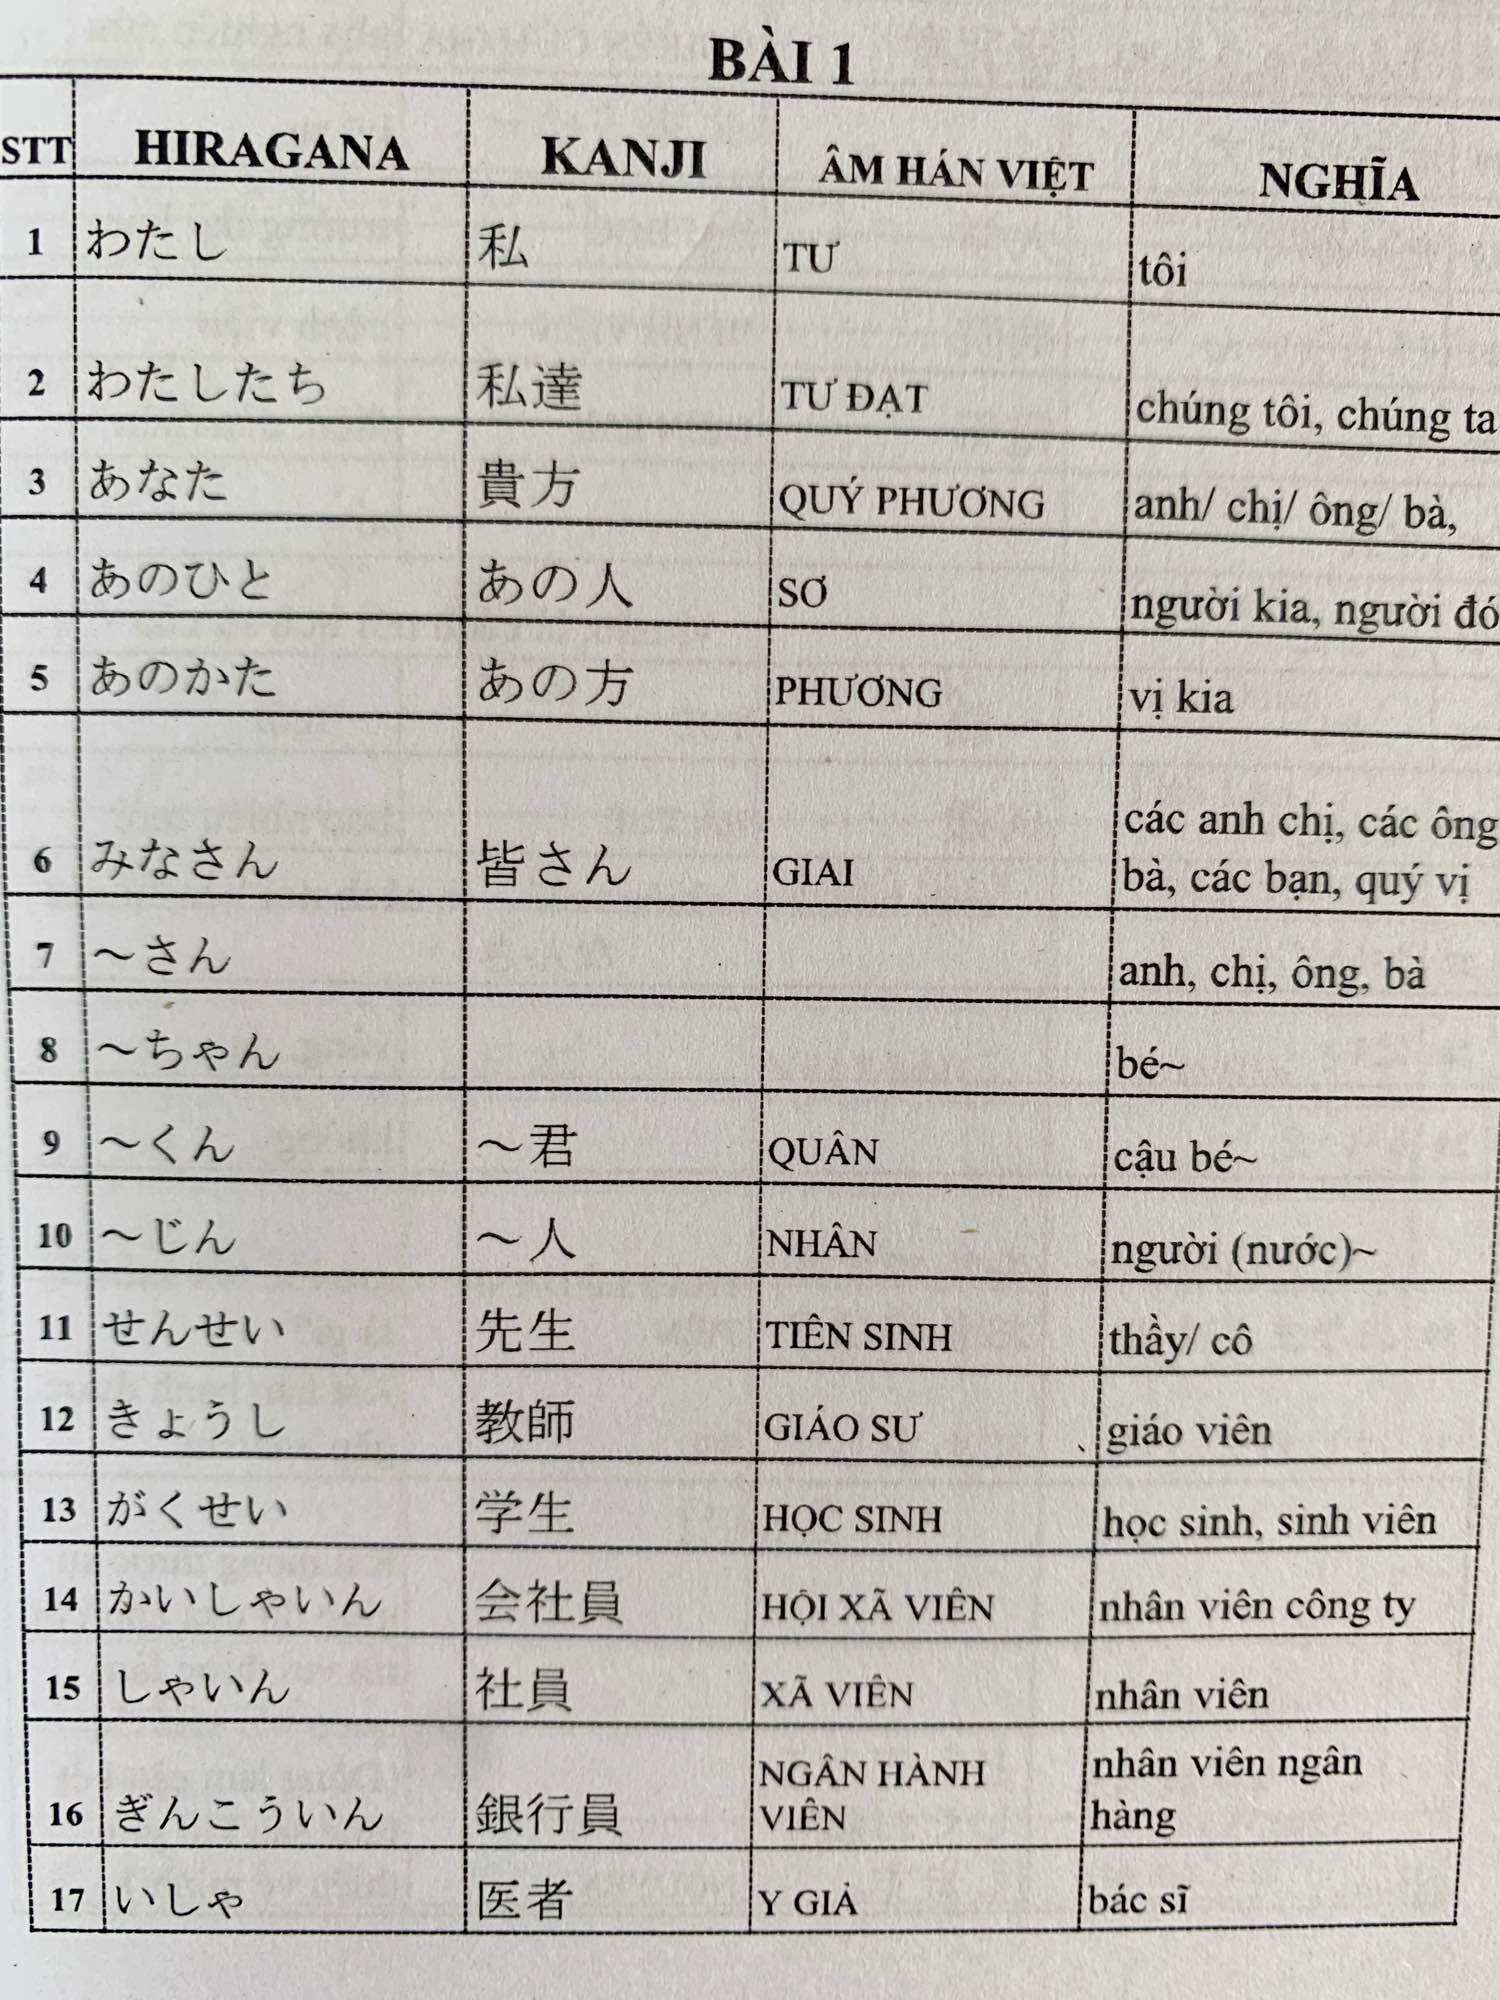 BÀI 1
STT HIRAGANA KANJI ÂM HÁN VIỆT NGHĨA
1 わたし 私 TƯ tôi
2 わたしたち 私達 TƯ ĐẠT chúng tôi, chúng ta
3 あなた 貴方 QUÝ PHƯƠNG anh/ chị/ ông/ bà,
4 あのひと あの人 SƠ người kia, người đó
5 あのかた あの方 PHƯƠNG vị kia
6 みなさん 皆さん GIAI các anh chị, các ông
bà, các bạn, quý vị
7 ～さん anh, chị, ông, bà
8 ～ちゃん bé~
9 ～くん ～君 QUÂN cậu bé~
10 ～じん ～人 NHÂN người (nước)~
11 せんせい 先生 TIÊN SINH thầy/ cô
12 きょうし 教師 GIÁO SƯ giáo viên
13 がくせい 学生 HỌC SINH học sinh, sinh viên
14 かいしゃいん 会社員 HỘI XÃ VIÊN nhân viên công ty
15 しゃいん 社員 XÃ VIÊN nhân viên
16 ぎんこういん 銀行員 NGÂN HÀNH
VIÊN nhân viên ngân
hàng
17 いしゃ 医者 Y GIẢ bác sĩ